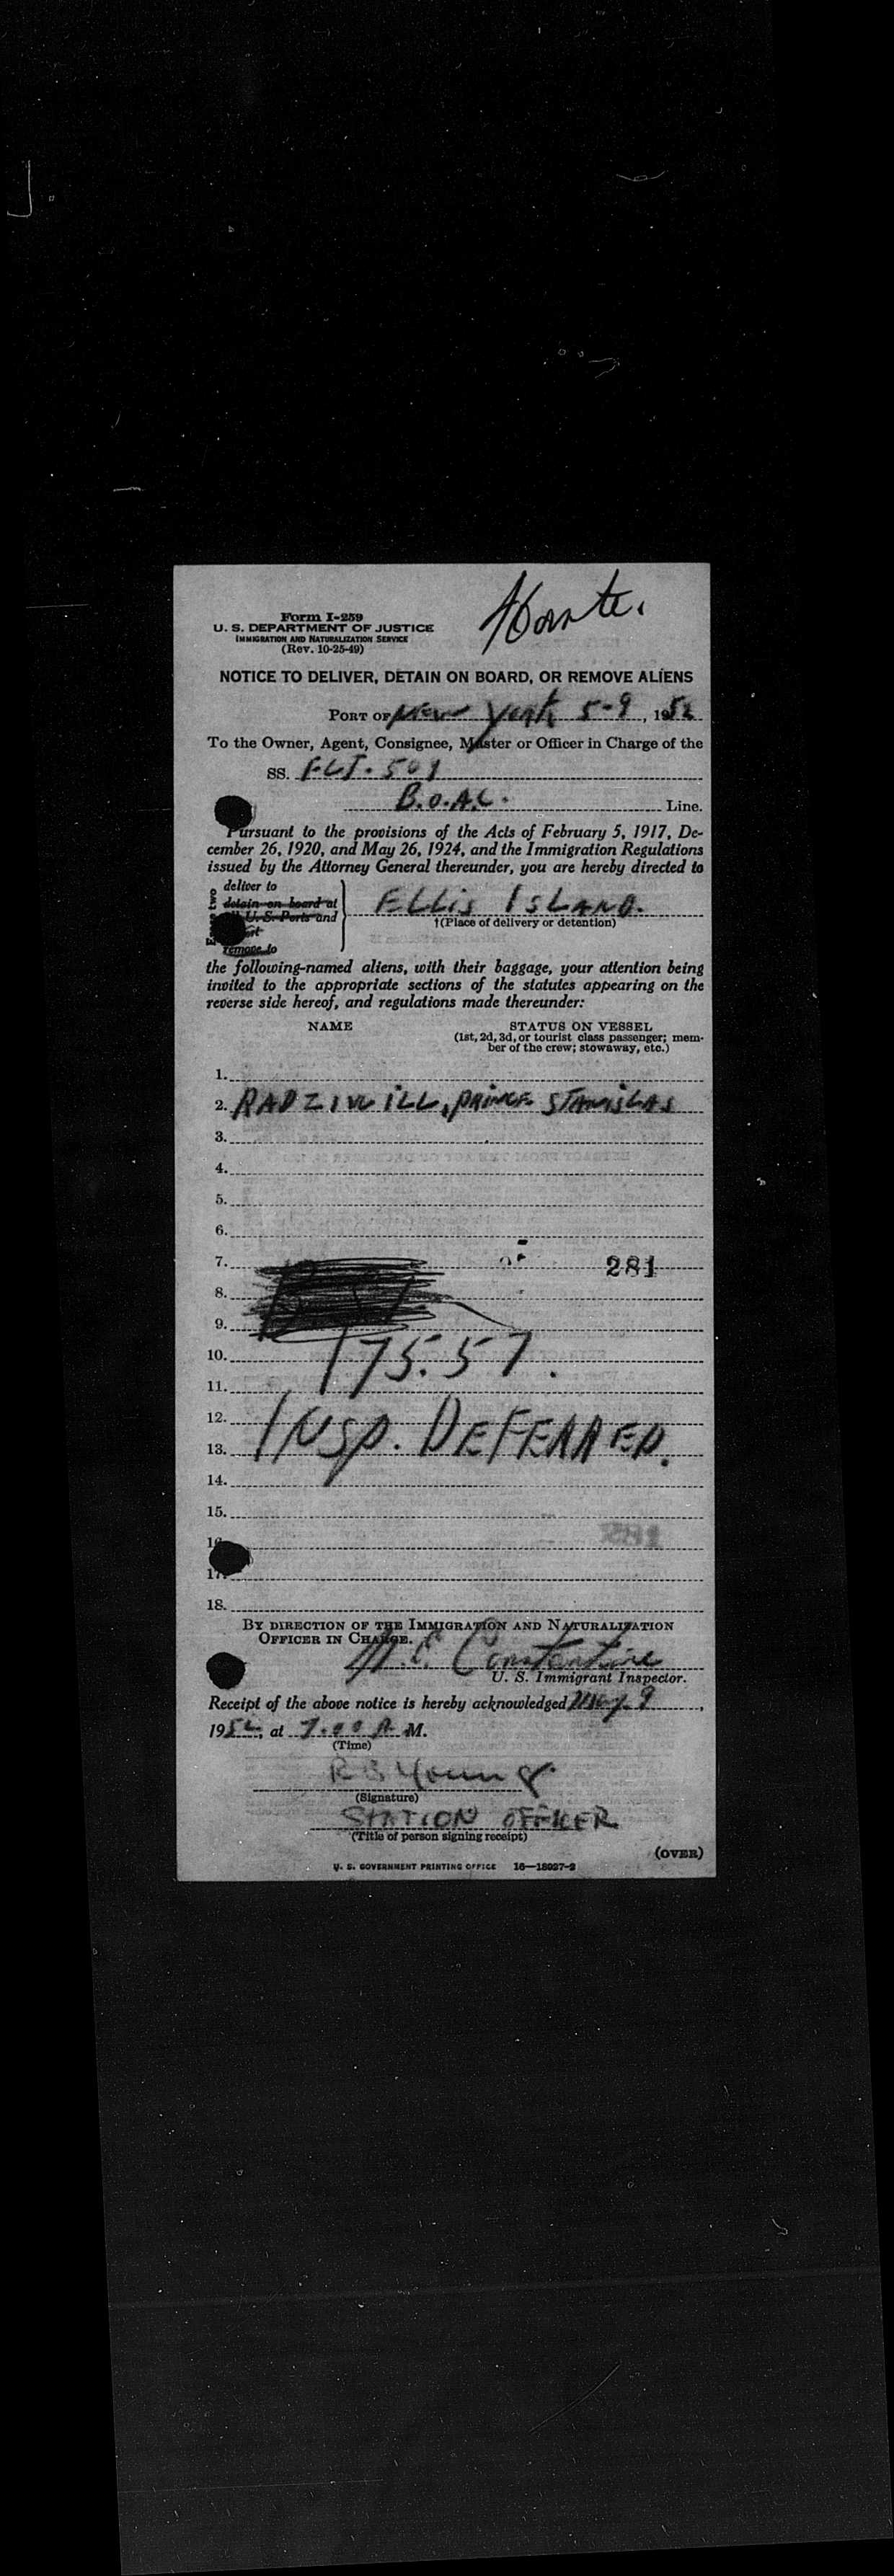 Form I-259
U. S. DEPARTMENT OF JUSTICE
IMMIGRATION AND NATURALIZATION SERVICE
(Rev. 10-25-49)
NOTICE TO DELIVER, DETAIN ON BOARD, OR REMOVE ALIENS
PORT OF New York 5-9, 1952
To the Owner, Agent, Consignee, Master or Officer in Charge of the
SS. FLT. 501
B.O.A.C. Line.
Pursuant to the provisions of the Acts of February 5, 1917, De-
cember 26, 1920, and May 26, 1924, and the Immigration Regulations
issued by the Attorney General thereunder, you are hereby directed to
deliver to
detain on board at
U. S. Ports and
remove to
ELLIS ISLAND.
†(Place of delivery or detention)
the following-named aliens, with their baggage, your attention being
invited to the appropriate sections of the statutes appearing on the
reverse side hereof, and regulations made thereunder:
NAME STATUS ON VESSEL
(1st, 2d, 3d, or tourist class passenger; mem-
ber of the crew; stowaway, etc.)
1.
2. RADZIWILL, PRINCE STANISLAS
3.
4.
5.
6.
7. 281
8.
9.
10. 175.57.
11.
12.
13. INSP. DEFERRED.
14.
15.
16
17.
18.
BY DIRECTION OF THE IMMIGRATION AND NATURALIZATION
OFFICER IN CHARGE.
Constantine
U. S. Immigrant Inspector.
Receipt of the above notice is hereby acknowledged May 9,
1952, at 7.00 A M.
(Time)
R B Young
(Signature)
STATION OFFICER
(Title of person signing receipt)
(OVER)
U. S. GOVERNMENT PRINTING OFFICE 16—18927-2